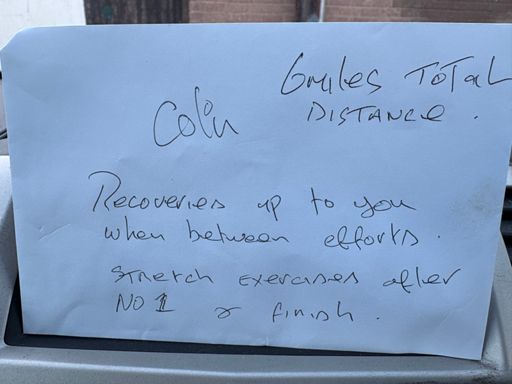 6miles ToTal
DISTANCE.
Colin
Recoveries up to you
when between efforts.
Stretch exercises after
NO 1 & finish.